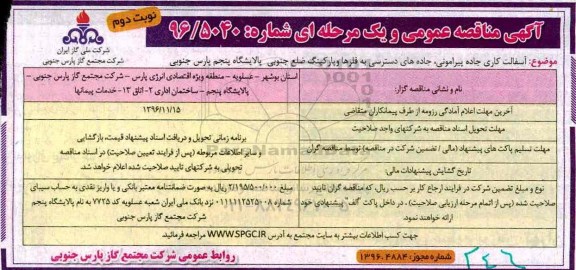 آگهی مناقصه عمومی و یک مرحله ای شماره: ۹۶/۵۰۴۰
نوبت دوم
شرکت ملی گاز ایران
شرکت مجتمع گاز پارس جنوبی
موضوع: آسفالت کاری جاده پیرامونی، جاده های دسترسی به فلرها وپارکینگ ضلع جنوبی پالایشگاه پنجم پارس جنوبی
نام و نشانی مناقصه گزار:
استان بوشهر - عسلویه - منطقه ویژه اقتصادی انرژی پارس - شرکت مجتمع گاز پارس جنوبی - پالایشگاه پنجم - ساختمان اداری ۲- اتاق ۱۳- خدمات پیمانها
آخرین مهلت اعلام آمادگی رزومه از طرف پیمانکاران متقاضی
۱۳۹۶/۱۱/۱۵
مهلت تحویل اسناد مناقصه به شرکتهای واجد صلاحیت
مهلت تسلیم پاکت های پیشنهاد (مالی / تضمین شرکت در مناقصه) توسط مناقصه گران
تاریخ گشایش پیشنهادات مالی:
برنامه زمانی تحویل و دریافت اسناد پیشنهاد قیمت، بازگشایی
و سایر اطلاعات مربوطه (پس از فرایند تعیین صلاحیت) در اسناد مناقصه
تحویلی به شرکتهای تایید صلاحیت شده اعلام خواهد شد.
نوع و مبلغ تضمین شرکت در فرایند ارجاع کار بر حسب ریال، که مناقصه گران تایید
صلاحیت شده (پس از اتمام مرحله ارزیابی صلاحیت)، در داخل پاکت "الف" پیشنهادی خود
ارائه خواهند نمود.
مبلغ ۲/۱۹۵/۵۰۰/۰۰۰ ریال به صورت ضمانتنامه معتبر بانکی و یا واریز نقدی به حساب سیبای
شماره ۰۱۱۱۱۱۲۵۲۵۰۰۸ نزد بانک ملی ایران شعبه عسلویه کد ۷۷۲۵ به نام پالایشگاه پنجم
شرکت مجتمع گاز پارس جنوبی
جهت کسب اطلاعات بیشتر به سایت مجتمع به آدرس WWW.SPGC.IR مراجعه فرمائید.
شماره مجوز: ۱۳۹۶.۴۸۸۴
روابط عمومی شرکت مجتمع گاز پارس جنوبی